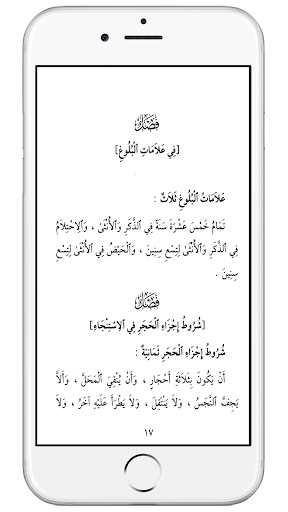 فَصْلٌ
[فِي عَلَامَاتِ ٱلْبُلُوغِ]
عَلَامَاتُ ٱلْبُلُوغِ ثَلَاثٌ :
تَمَامُ خَمْسَ عَشْرَةَ سَنَةً فِي ٱلذَّكَرِ وَٱلْأُنْثَىٰ ، وَٱلِاحْتِلَامُ
فِي ٱلذَّكَرِ وَٱلْأُنْثَىٰ لِتِسْعِ سِنِينَ ، وَٱلْحَيْضُ فِي ٱلْأُنْثَىٰ لِتِسْعِ
سِنِينَ .
فَصْلٌ
[شُرُوطُ إِجْزَاءِ ٱلْحَجَرِ فِي ٱلِاسْتِنْجَاءِ]
شُرُوطُ إِجْزَاءِ ٱلْحَجَرِ ثَمَانِيَةٌ :
أَنْ يَكُونَ بِثَلَاثَةِ أَحْجَارٍ ، وَأَنْ يُنْقِيَ ٱلْمَحَلَّ ، وَأَلَّا
يَجِفَّ ٱلنَّجَسُ ، وَلَا يَنْتَقِلَ ، وَلَا يَطْرَأَ عَلَيْهِ آخَرُ ، وَلَا
١٧